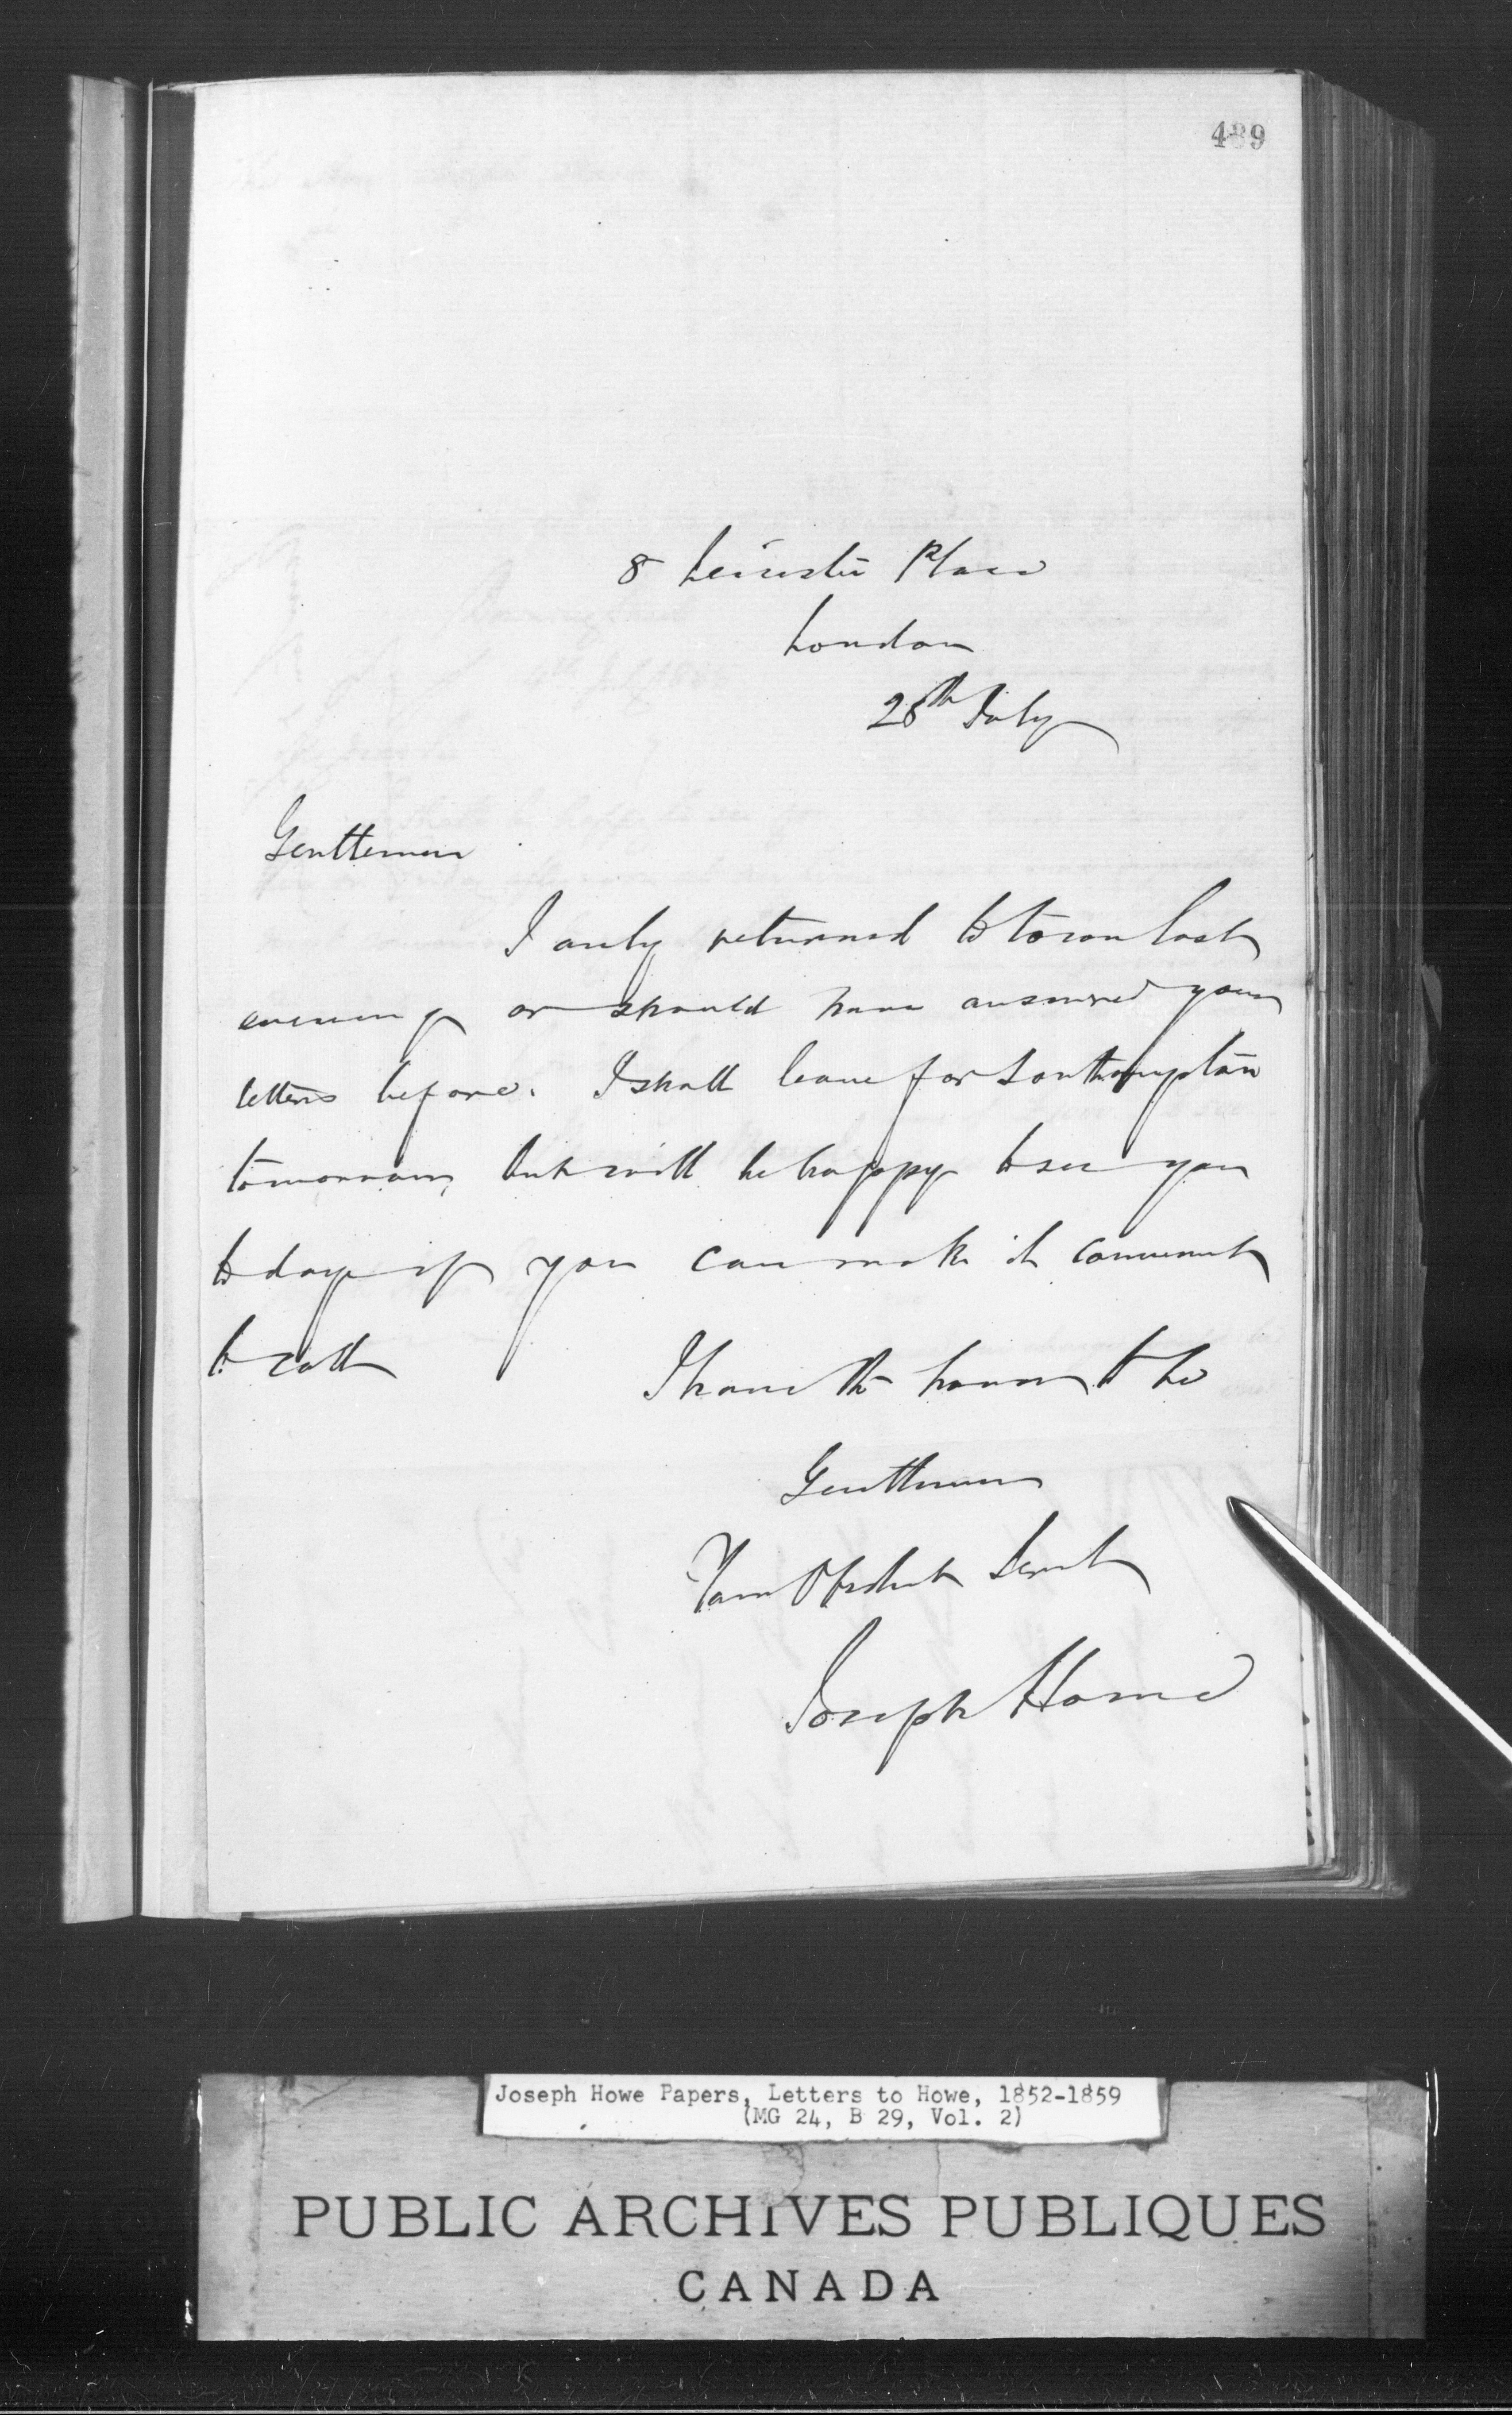 489
8 Leicester Place
London
28th July
Gentlemen
I only returned to town last
evening or should have answered your
letters before. I shall leave for Southampton
tomorrow, but will be happy to see you
to day if you can make it convenient
to call
I have the honor to be
Gentlemen
Your Obedient Servt
Joseph Howe
Joseph Howe Papers, Letters to Howe, 1852-1859
(MG 24, B 29, Vol. 2)
PUBLIC ARCHIVES PUBLIQUES
CANADA